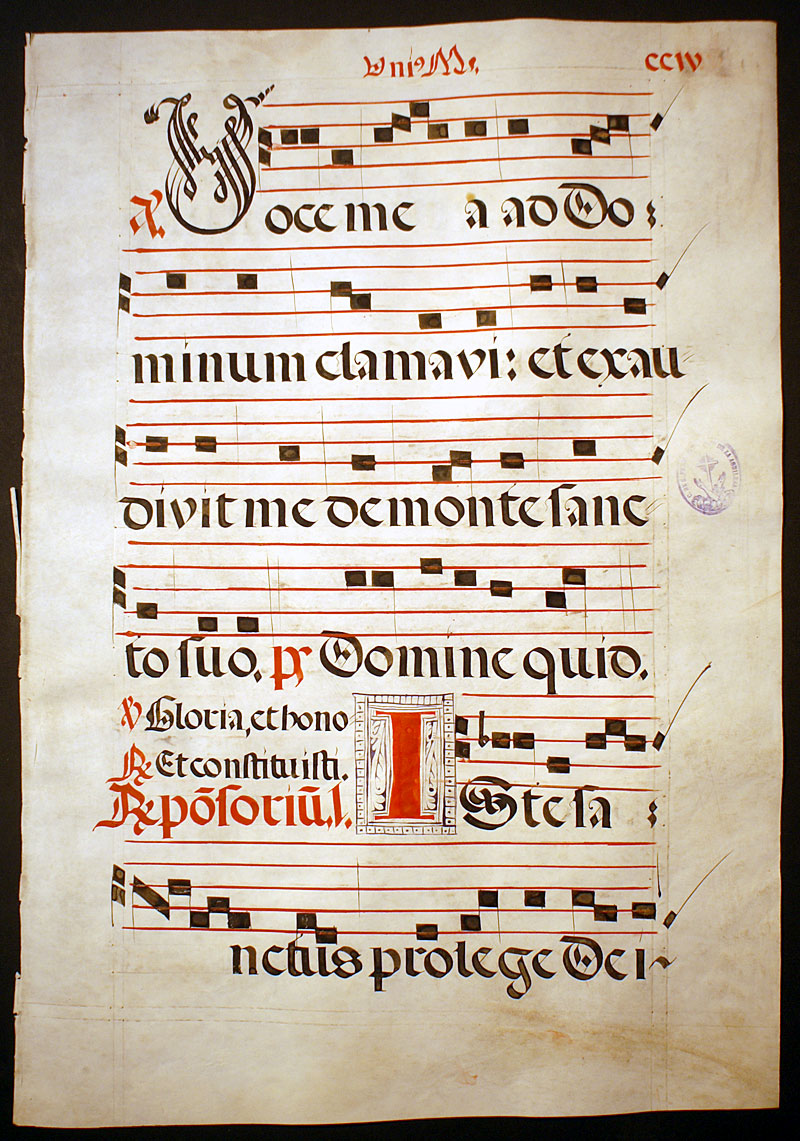 Uni⁹ M̃. CCIV
A. Voce me a ad Do:
minum clamavi: et exau
divit me de monte sanc
to suo. ps Domine quid.
℣ Gloria, et hono
℟ Et constituisti.
Respōsoriū.I. ISte sa:
nctus pro lege Dei